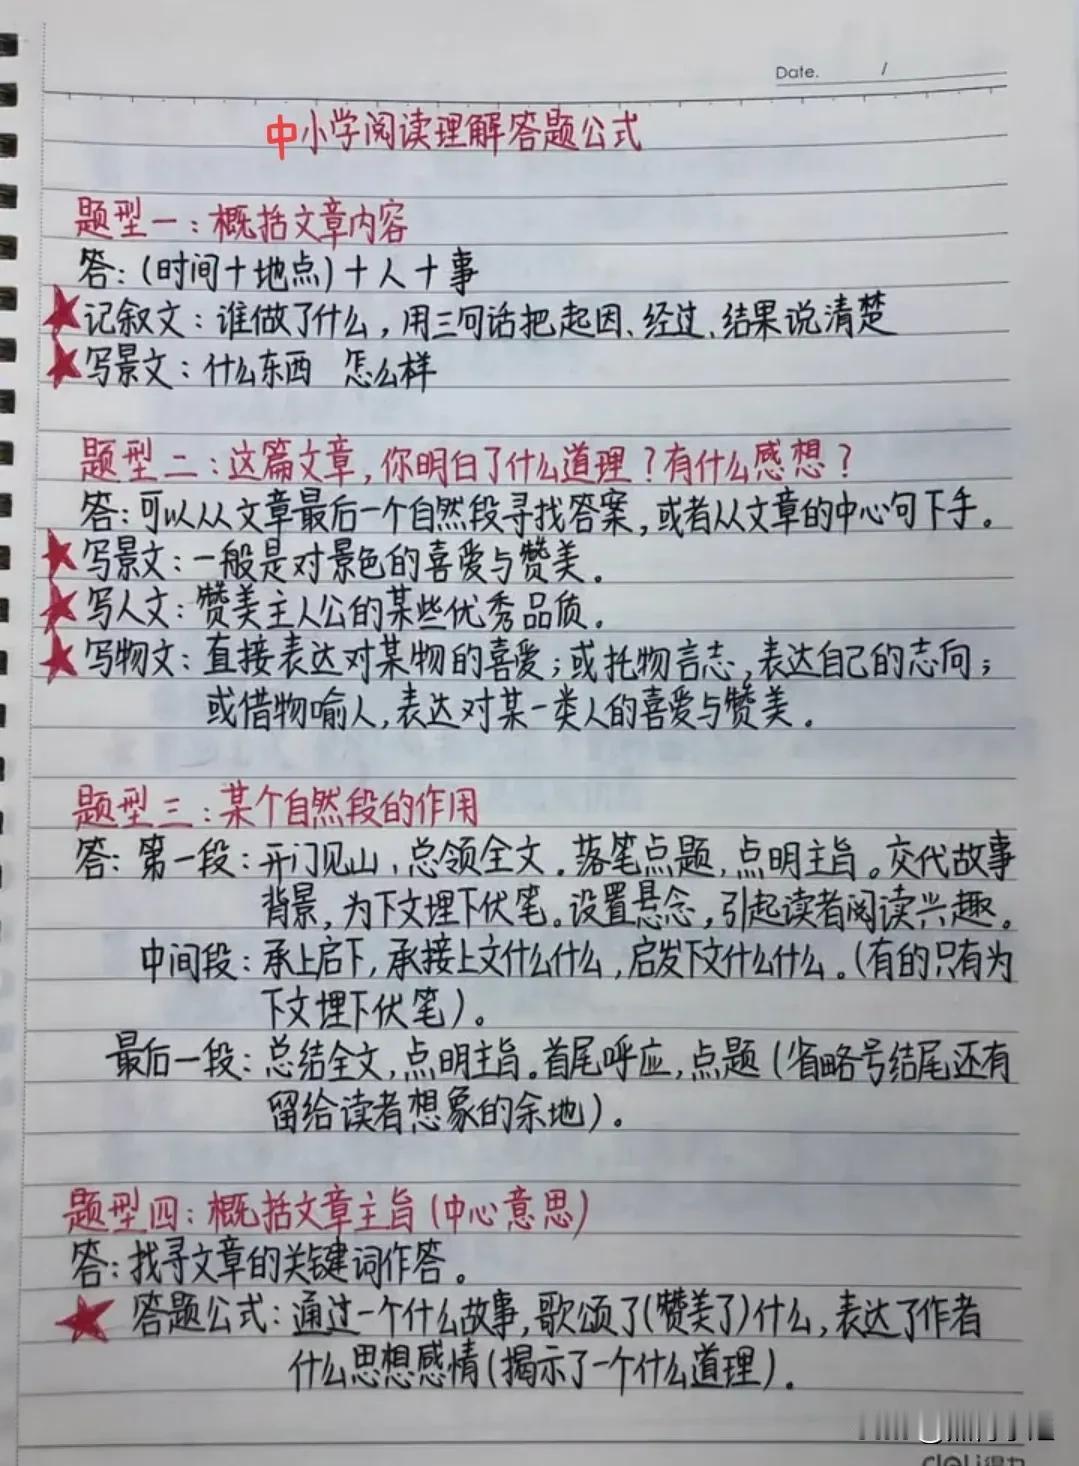 Date. /
中小学阅读理解答题公式
题型一：概括文章内容
答：(时间+地点)+人+事
★记叙文：谁做了什么，用三句话把起因、经过、结果说清楚
★写景文：什么东西 怎么样
题型二：这篇文章，你明白了什么道理？有什么感想？
答：可以从文章最后一个自然段寻找答案，或者从文章的中心句下手。
★写景文：一般是对景色的喜爱与赞美。
★写人文：赞美主人公的某些优秀品质。
★写物文：直接表达对某物的喜爱；或托物言志，表达自己的志向；
或借物喻人，表达对某一类人的喜爱与赞美。
题型三：某个自然段的作用
答：第一段：开门见山，总领全文。落笔点题，点明主旨。交代故事
背景，为下文埋下伏笔。设置悬念，引起读者阅读兴趣。
中间段：承上启下，承接上文什么什么，启发下文什么什么。(有的只有为
下文埋下伏笔)。
最后一段：总结全文，点明主旨。首尾呼应，点题(省略号结尾还有
留给读者想象的余地)。
题型四：概括文章主旨(中心意思)
答：找寻文章的关键词作答。
★答题公式：通过一个什么故事，歌颂了(赞美了)什么，表达了作者
什么思想感情(揭示了一个什么道理)。
deli得力